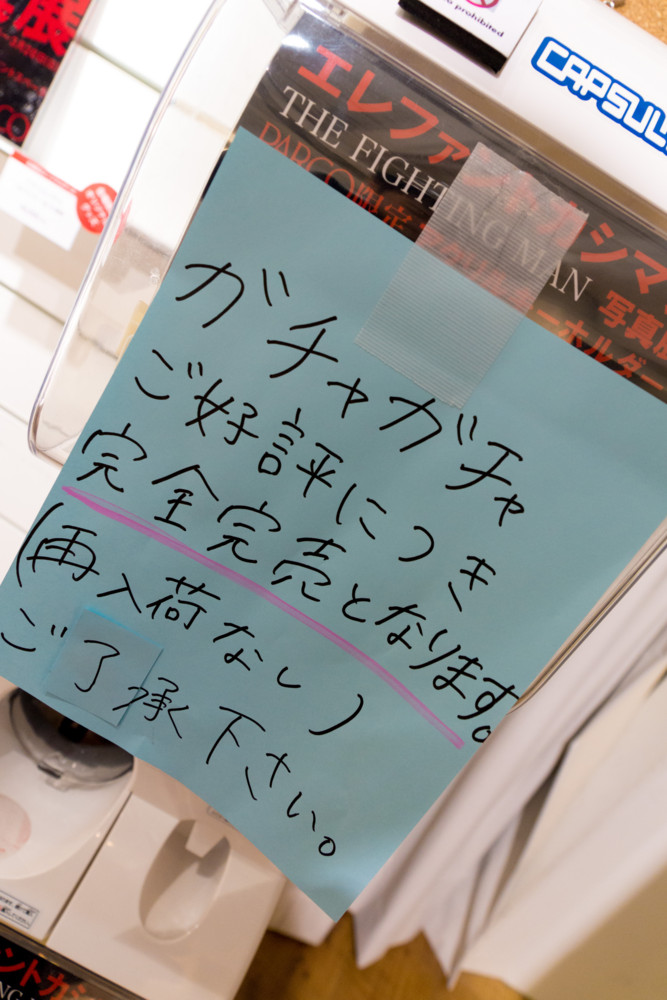 展
prohibited
CAPSUL
エレファントカシマ
THE FIGHTING MAN 写真展
PARCO限定
ーホルダー
ガチャガチャ
ご好評につき
完全完売となります。
(再入荷なし)
ご了承下さい。
ントカシ